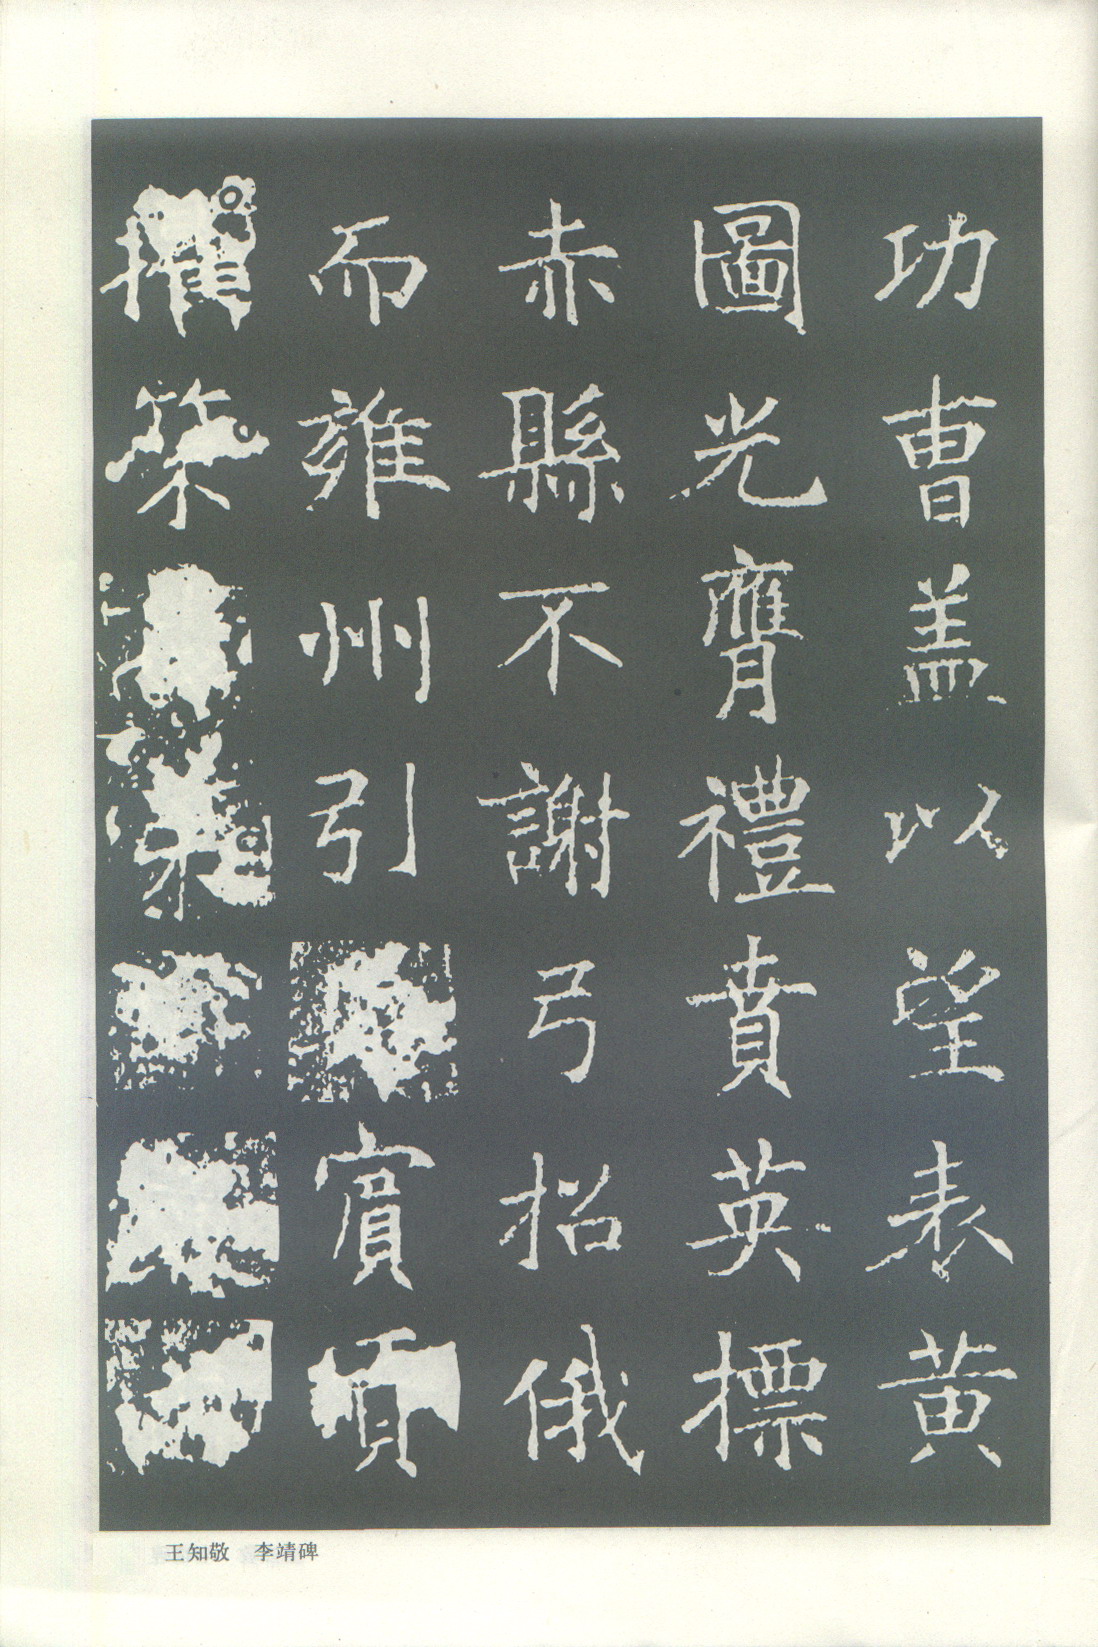 功曹盖以望表黄
圖光膺禮賁英摽
赤縣不謝弓招俄
而雍州引賔貢
擢策
王知敬 李靖碑